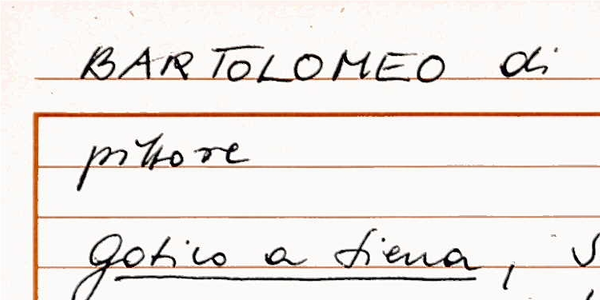 BARTOLOMEO di
pittore
Gotico a Siena, S